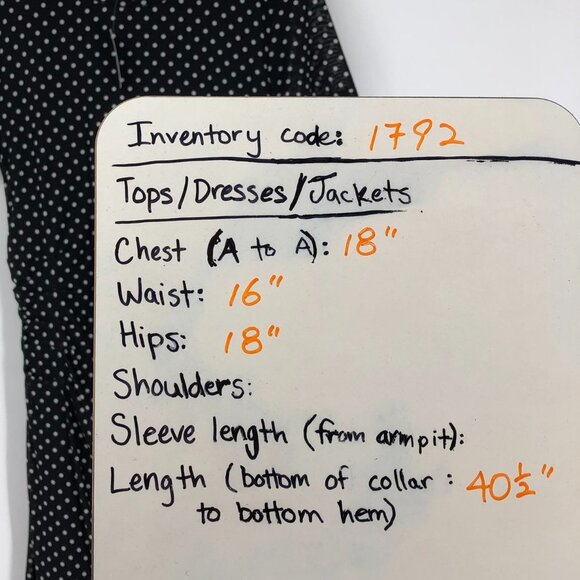 Inventory code: 1792
Tops/Dresses/Jackets
Chest (A to A): 18"
Waist: 16"
Hips: 18"
Shoulders:
Sleeve length (from armpit):
Length (bottom of collar : 40 1/2"
to bottom hem)